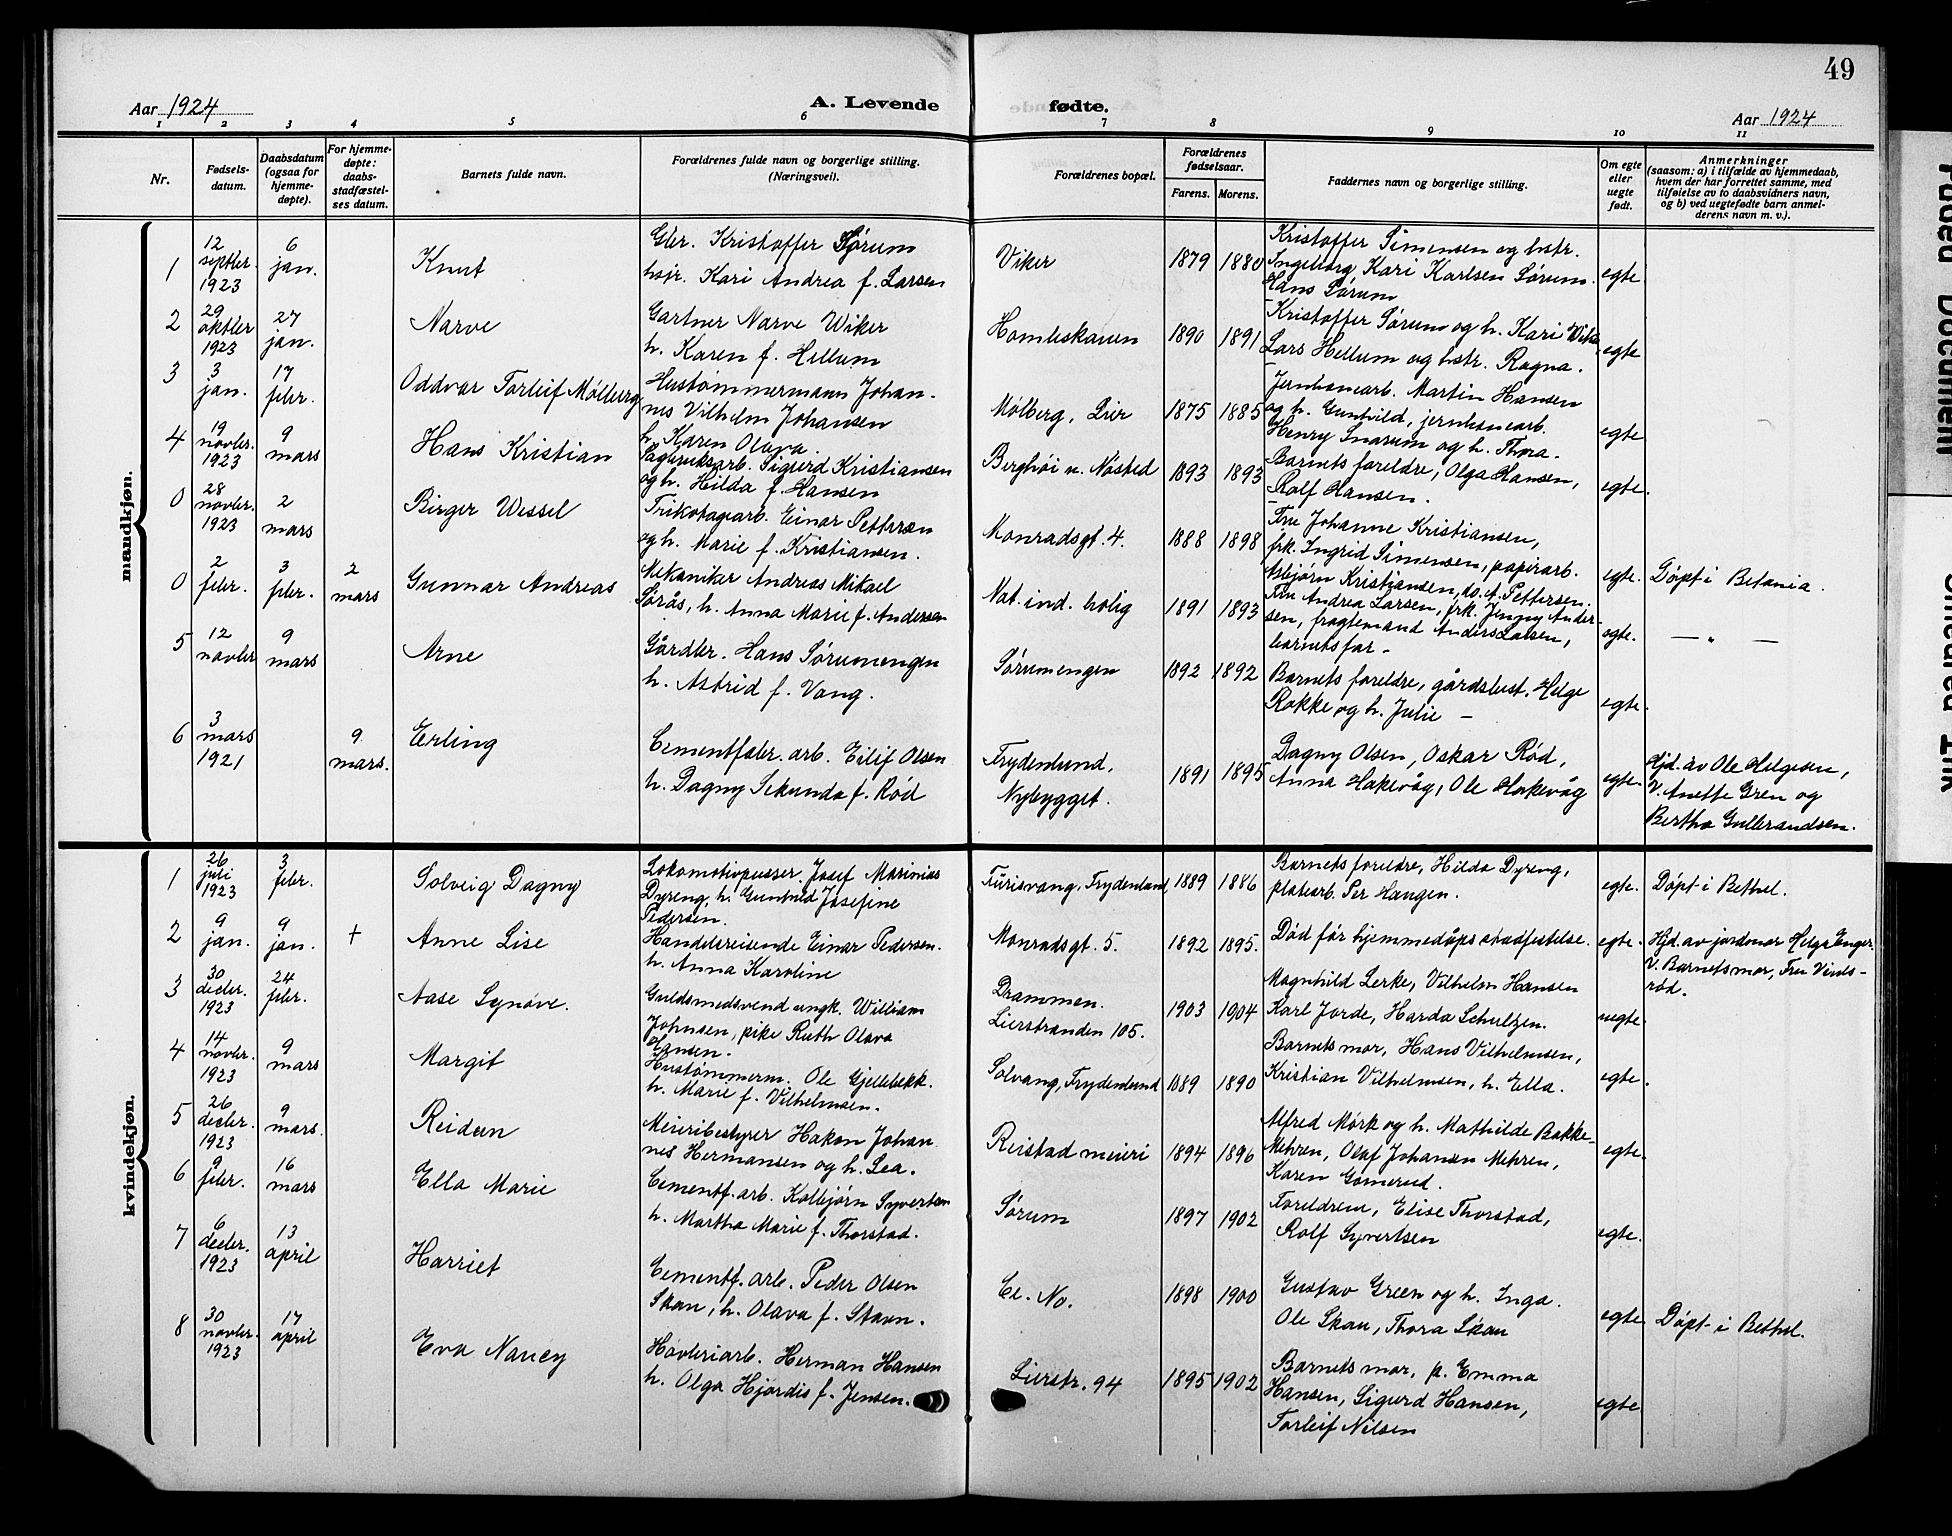 49
Aar 1924
A. Levende fødte.
Aar 1924
1 2 3 4 5 6 7 8 9 10 11
Nr.
Fødsels-
datum.
Daabsdatum
(ogsaa for
hjemme-
døpte).
For hjemme-
døpte:
daabs-
stadfæstel-
ses datum.
Barnets fulde navn.
Forældrenes fulde navn og borgerlige stilling.
(Næringsvei).
Forældrenes bopæl.
Forældrenes
fødselsaar.
Farens. Morens.
Faddernes navn og borgerlige stilling.
Om egte
eller
uegte
født.
Anmerkninger
(saasom: a) i tilfælde av hjemmedaab,
hvem der har forrettet samme, med
tilføielse av to daabsvidners navn,
og b) ved uegtefødte barn anmel-
derens navn m. v.).
mandkjøn.
1 12 septbr. 1923 6 jan. Knut
Gbr. Kristoffer Sørum
hstr. Kari Andrea f. Larsen
Viker 1879 1880
Kristoffer Simensen og hstr.
Ingeborg, Kari Karlsen Sørum.
Hans Sørum
egte
2 29 oktbr 1923 27 jan. Narve
Gartner Narve Wiker
h. Karen f. Hellum
1890 1891
Kristoffer Sørum og h. Kari Wiker
Lars Hellum og hstr. Ragna.
egte
3 3 jan. 17 febr. Oddvar Torleif Mølberg
Hustømmermann Johan-
nes Vilhelm Johansen
h. Karen Olava.
Mølberg, Lier 1875 1885
Jernbanearb. Martin Hansen
og h. Gunhild, jernbanearb.
Henry Snarum og h. Thora.
egte
4 19 novbr. 1923 9 mars Hans Kristian
Sagbruksarb. Sigurd Kristiansen
og h. Hilda f. Hansen
Berghøi n. Nøsted 1893 1893
Barnets foreldre, Olga Hansen,
Rolf Hansen.
egte.
0 28 novbr. 1923 2 mars Birger Wessel
Trikotagearb. Einar Pettersen
og h. Marie f. Kristiansen.
Monradsgt. 4. 1888 1898
Fru Johanne Kristiansen,
frk. Ingrid Simensen, papirarb.
Asbjørn Kristiansen, do. A. Pettersen.
egte. Døpt i Betania.
0 2 febr. 3 febr. 2 mars Gunnar Andreas
Mekaniker Andreas Mikael
Sørås, h. Anna Marie f. Andersen
Nat. ind. bolig 1891 1893
Fru Andrea Larsen, frk. Jenny Ander-
sen, fragtemand Anders Larsen,
barnets far -
egte. — „ —
5 12 novbr 9 mars Arne
Gårdbr. Hans Sørumengen
h. Astrid f. Vang.
Sørumengen 1892 1892
Barnets foreldre, gårdsbest. Helge
Rokke og h. Julie -
egte.
6 3 mars 1921 9 mars. Erling
Cementfabr. arb. Eilif Olsen
h. Dagny Sekunda f. Rød
Frydenlund,
Nybygget. 1891 1895
Dagny Olsen, Oskar Rød,
Anna Hakevåg, Ole Hakevåg
egte.
Hjd. av Ole Helgesen,
V. Anette Gren og
Bertha Gulbrandsen.
kvindekjøn.
1 26 juli 1923 3 febr. Solveig Dagny
Lokomotivpusser Josef Marinius
Dyreng, h. Gunhild Josefine
Pedersen.
Furisvang, Frydenlund 1889 1886
Barnets foreldre, Hilda Dyreng,
platearb. Per Haugen.
egte. Døpt i Bethel.
2 9 jan. 9 jan. + Anne Lise
Handelsreisende Einar Pedersen.
h. Anna Karoline
Monradsgt. 5. 1892 1895.
Død før hjemmedåps stadfestelse.
egte.
Hjd. av jordmor Helga Enger.
V. Barnets mor, Fru Vinds-
rød.
3 30 decbr. 1923 24 febr. Aase Synøve.
Guldsmedsvend ungk. William
Johnsen, pike Ruth Olava
Hansen.
Drammen.
Lierstranden 105. 1903 1904
Magnhild Lerke, Vilhelm Hansen
Karl Jorde, Harda Schultzen.
uegte.
4 14 novbr. 1923 9 mars Margit
Hustømmerm. Ole Gjellebekk.
h. Marie f. Vilhelmsen.
Solvang, Frydenlund 1889 1890
Barnets mor, Hans Vilhelmsen,
Kristian Vilhelmsen, h. Ella.
egte.
5 26 decbr. 1923 9 mars. Reidun
Meieribestyrer Hakon Johan
nes Hermansen og h. Lea.
Reistad meieri 1894 1896
Alfred Mørk og h. Mathilde Bakke-
Mehren, Olaf Johansen Mehren,
Karen Gomerud.
egte.
6 9 febr. 16 mars Ella Marie
Cementf. arb. Kolbjørn Syvertsen
h. Martha Marie f. Thorstad.
Sørum 1897 1902
Foreldrene, Elise Thorstad,
Rolf Syvertsen
egte.
7 6 decbr. 1923 13 april Harriet
Cementf. arb. Peder Olsen
Skau, h. Olava f. Stavn.
Ce. No. 1898 1900
Gustav Green og h. Inga.
Ole Skau, Thora Skau
egte Døpt i Bethel.
8 30 novbr. 1923 17 april Eva Nancy
Høvleriarb. Herman Hansen
h. Olga Hjørdis f. Jensen.
Lierstr. 94 1895 1902
Barnets mor, p. Emma
Hansen, Sigurd Hansen,
Torleif Nilsen
egte